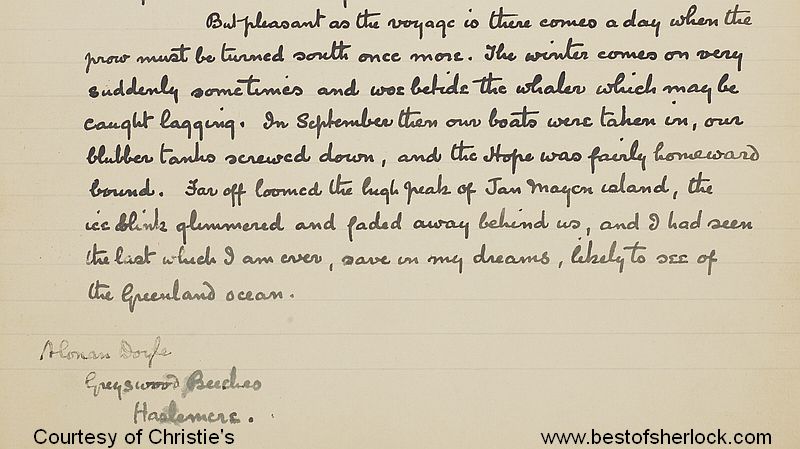 But pleasant as the voyage is there comes a day when the
prow must be turned south once more. The winter comes on very
suddenly sometimes and woe betide the whaler which may be
caught lagging. In September then our boats were taken in, our
blubber tanks screwed down, and the Hope was fairly homeward
bound. Far off loomed the high peak of Jan Mayen island, the
ice blink glimmered and faded away behind us, and I had seen
the last which I am ever, save in my dreams, likely to see of
the Greenland ocean.
A Conan Doyle
Greyswood Beeches
Haslemere.
Courtesy of Christie's
www.bestofsherlock.com